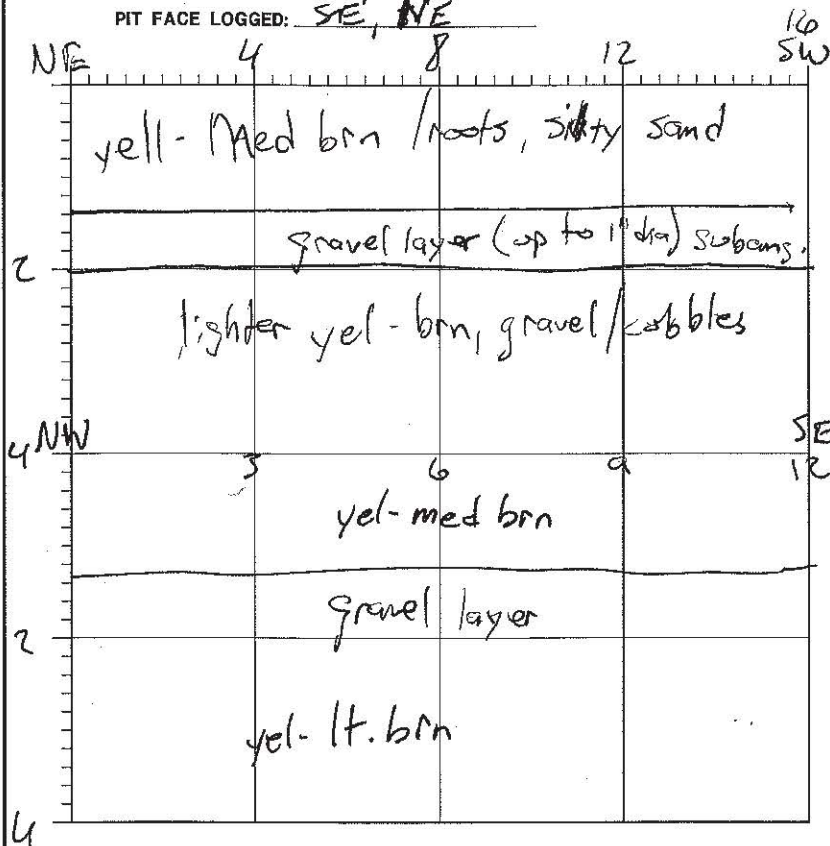 PIT FACE LOGGED: SE, NE
16
NE 4 8 12 SW
yell- Med brn /roots, silty sand
gravel layer (up to 1" dia) subang.
2
lighter yel-brn, gravel/cobbles
4 NW SE
3 6 9 12
yel-med brn
gravel layer
2
yel- lt. brn
4